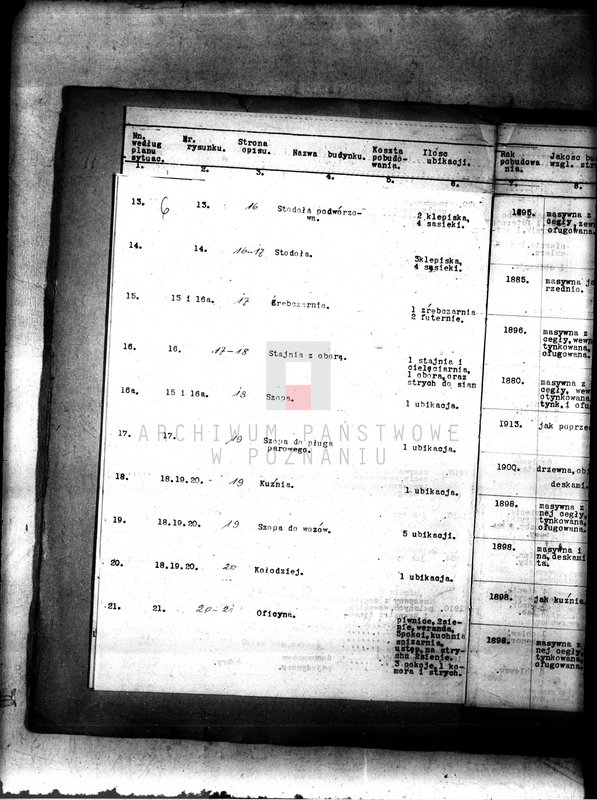 Nn. według planu sytuac. Nr. rysunku. Strona opisu. Nazwa budynku. Koszta pobudowania. Ilość ubikacji. Rok pobudowania. Jakość bu wzgl. str
1. 2. 3. 4. 5. 6. 7. 8.
13. 6 13. 16 Stodoła podwórzo-
wa. 2 klepiska,
4 sąsieki. 1895. masywna z
cegły, zew
ofugowana.
14. 14. 16-17 Stodoła. 3klepiska,
4 sąsieki. 1885. masywna ja
rzednio.
15. 15 i 16a. 17 źrebczarnia. 1 źrebczarnia
2 futernie. 1896. masywna z
cegły, wewn
tynkowana,
ofugowana.
16. 16. 17-18 Stajnia z oborą. 1 stajnia i
cielęciarnia,
1 obora, oraz
strych do sian 1880. masywna z
cegły, wew
otynkowana
tynk. i ofu
16a. 15 i 16a. 18 Szopa. 1 ubikacja. 1913. jak poprze
17. 17. 19 Szopa do pługa
parowego. 1 ubikacja. 1900. drzewna, obi
deskami.
18. 18.19.20. 19 Kuźnia. 1 ubikacja. 1898. masywna z
nej cegły,
tynkowana,
ofugowana.
19. 18.19.20. 19 Szopa do wozów. 5 ubikacji. 1898. masywna i
na, deskami
ta.
20. 18.19.20. 20 Kołodziej. 1 ubikacja. 1898. jak kuźnia.
21. 21. 20-21 Oficyna. piwnice, 2sie-
nie, weranda,
5pokoi, kuchnia
śpiżarnia,
ustęp, na stry-
chu 2sienie,
3 pokoje, 1 ko-
mora i strych. 1898. masywna z
nej cegły,
tynkowana,
ofugowana.
ARCHIWUM PAŃSTWOWE
W POZNANIU